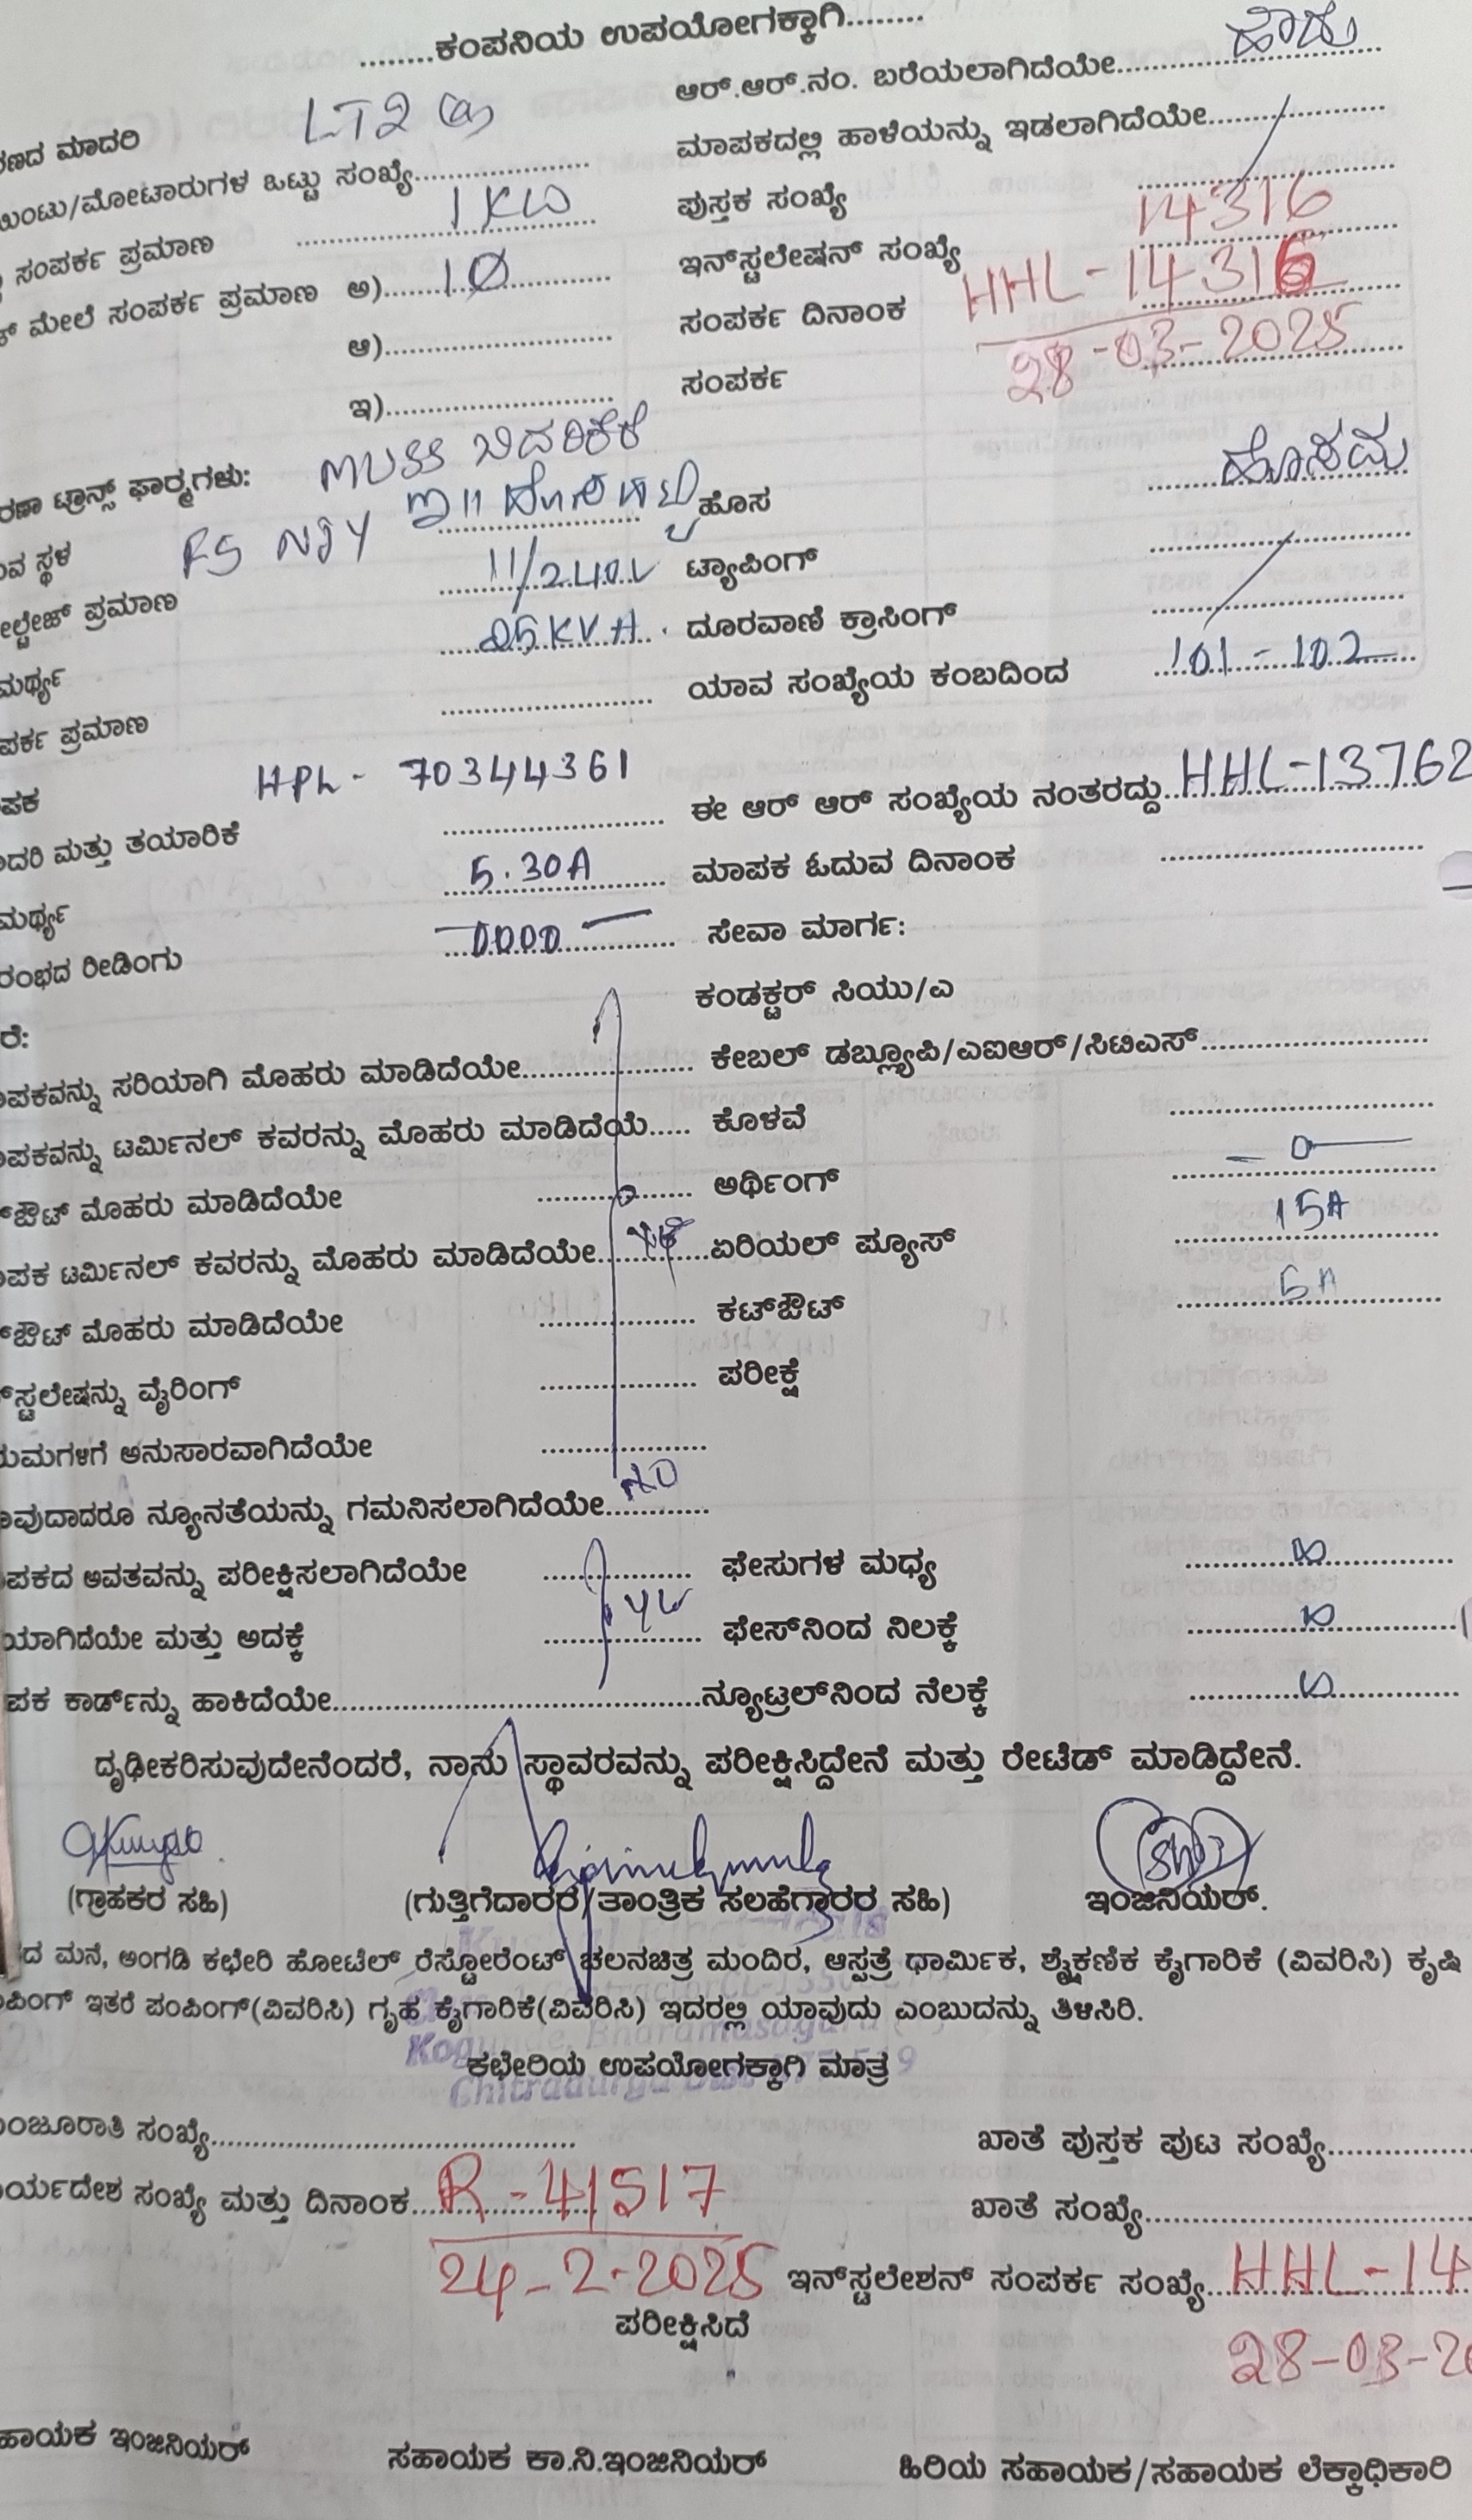 ........ಕಂಪನಿಯ ಉಪಯೋಗಕ್ಕಾಗಿ........
ಆರ್.ಆರ್.ನಂ. ಬರೆಯಲಾಗಿದೆಯೇ........ ಹೌದು
ರಣದ ಮಾದರಿ LT2 (a)
ಮಾಪಕದಲ್ಲಿ ಹಾಳೆಯನ್ನು ಇಡಲಾಗಿದೆಯೇ........
ಯಿಂಟು/ಮೋಟಾರುಗಳ ಒಟ್ಟು ಸಂಖ್ಯೆ........
ಪುಸ್ತಕ ಸಂಖ್ಯೆ 14316
ಸಂಪರ್ಕ ಪ್ರಮಾಣ 1 KW
ಇನ್‌ಸ್ಟಲೇಷನ್ ಸಂಖ್ಯೆ HHL-14316
ಕ್ ಮೇಲೆ ಸಂಪರ್ಕ ಪ್ರಮಾಣ ಅ)........ 1Ø
ಸಂಪರ್ಕ ದಿನಾಂಕ 28-03-2025
ಆ)........
ಸಂಪರ್ಕ
ಇ)........
ರಣಾ ಟ್ರಾನ್ಸ್ ಫಾರ್ಮ್ಗಳು: MUSS ಬಿದರಿಕೆರೆ
ವ ಸ್ಥಳ F5 NJY
ಹೊಸ ಹೊಸದು
ೇಲ್ಟೇಜ್ ಪ್ರಮಾಣ 11/240V
ಟ್ಯಾಪಿಂಗ್
ಮರ್ಥ್ಯ 25KVA
ದೂರವಾಣಿ ಕ್ರಾಸಿಂಗ್
ಪರ್ಕ ಪ್ರಮಾಣ
ಯಾವ ಸಂಖ್ಯೆಯ ಕಂಬದಿಂದ 101-102
ಪಕ HPL- 70344361
ಈ ಆರ್ ಆರ್ ಸಂಖ್ಯೆಯ ನಂತರದ್ದು........ HHL-13762
ಾದರಿ ಮತ್ತು ತಯಾರಿಕೆ
ಮಾಪಕ ಓದುವ ದಿನಾಂಕ
ಮರ್ಥ್ಯ 5.30A
ಸೇವಾ ಮಾರ್ಗ:
ರಂಭದ ರೀಡಿಂಗು 0000
ಕಂಡಕ್ಟರ್ ಸಿಯು/ಎ
ರೆ:
ಾಪಕವನ್ನು ಸರಿಯಾಗಿ ಮೊಹರು ಮಾಡಿದೆಯೇ........
ಕೇಬಲ್ ಡಬ್ಲ್ಯೂಪಿ/ಎಐಆರ್/ಸಿಟಿಎಸ್........
ಾಪಕವನ್ನು ಟರ್ಮಿನಲ್ ಕವರನ್ನು ಮೊಹರು ಮಾಡಿದೆಯೆ.....
ಕೊಳವೆ
್‌ಔಟ್ ಮೊಹರು ಮಾಡಿದೆಯೇ
ಅರ್ಥಿಂಗ್
ಾಪಕ ಟರ್ಮಿನಲ್ ಕವರನ್ನು ಮೊಹರು ಮಾಡಿದೆಯೇ........
ಏರಿಯಲ್ ಪ್ಯೂಸ್ 15A
್‌ಔಟ್ ಮೊಹರು ಮಾಡಿದೆಯೇ
ಕಟ್‌ಔಟ್ 5A
್‌ಸ್ಟಲೇಷನ್ನು ವೈರಿಂಗ್
ಪರೀಕ್ಷೆ
ಯಮಗಳಿಗೆ ಅನುಸಾರವಾಗಿದೆಯೇ
ಾವುದಾದರೂ ನ್ಯೂನತೆಯನ್ನು ಗಮನಿಸಲಾಗಿದೆಯೇ........ NO
ಪಕದ ಅವತವನ್ನು ಪರೀಕ್ಷಿಸಲಾಗಿದೆಯೇ
ಫೇಸುಗಳ ಮಧ್ಯ
ಯಾಗಿದೆಯೇ ಮತ್ತು ಅದಕ್ಕೆ
ಫೇಸ್‌ನಿಂದ ನಿಲಕ್ಕೆ
ಪಕ ಕಾರ್ಡ್‌ನ್ನು ಹಾಕಿದೆಯೇ........
ನ್ಯೂಟ್ರಲ್‌ನಿಂದ ನೆಲಕ್ಕೆ
ದೃಢೀಕರಿಸುವುದೇನೆಂದರೆ, ನಾನು ಸ್ಥಾವರವನ್ನು ಪರೀಕ್ಷಿಸಿದ್ದೇನೆ ಮತ್ತು ರೇಟೆಡ್ ಮಾಡಿದ್ದೇನೆ.
(ಗ್ರಾಹಕರ ಸಹಿ) (ಗುತ್ತಿಗೆದಾರರ/ತಾಂತ್ರಿಕ ಸಲಹೆಗ್ರಾರರ ಸಹಿ) ಇಂಜಿನಿಯರ್.
ದ ಮನೆ, ಅಂಗಡಿ ಕಛೇರಿ ಹೋಟೆಲ್ ರೆಸ್ಟೋರೆಂಟ್ ಚಲನಚಿತ್ರ ಮಂದಿರ, ಆಸ್ಪತ್ರೆ ಧಾರ್ಮಿಕ, ಶೈಕ್ಷಣಿಕ ಕೈಗಾರಿಕೆ (ವಿವರಿಸಿ) ಕೃಷಿ
ಪಿಂಗ್ ಇತರೆ ಪಂಪಿಂಗ್(ವಿವರಿಸಿ) ಗೃಹ ಕೈಗಾರಿಕೆ(ವಿವರಿಸಿ) ಇದರಲ್ಲಿ ಯಾವುದು ಎಂಬುದನ್ನು ತಿಳಿಸಿರಿ.
Bharamasagara
ಕಛೇರಿಯ ಉಪಯೋಗಕ್ಕಾಗಿ ಮಾತ್ರ
Chitradurga
ಂಜೂರಾತಿ ಸಂಖ್ಯೆ........
ಖಾತೆ ಪುಸ್ತಕ ಪುಟ ಸಂಖ್ಯೆ........
ರ್ಯದೇಶ ಸಂಖ್ಯೆ ಮತ್ತು ದಿನಾಂಕ........ R-41517
ಖಾತೆ ಸಂಖ್ಯೆ........
24-2-2025
ಇನ್‌ಸ್ಟಲೇಶನ್ ಸಂಪರ್ಕ ಸಂಖ್ಯೆ........ HHL-14
ಪರೀಕ್ಷಿಸಿದೆ
28-03-20
ಹಾಯಕ ಇಂಜಿನಿಯರ್ ಸಹಾಯಕ ಕಾ.ನಿ.ಇಂಜಿನಿಯರ್ ಹಿರಿಯ ಸಹಾಯಕ/ಸಹಾಯಕ ಲೆಕ್ಕಾಧಿಕಾರಿ